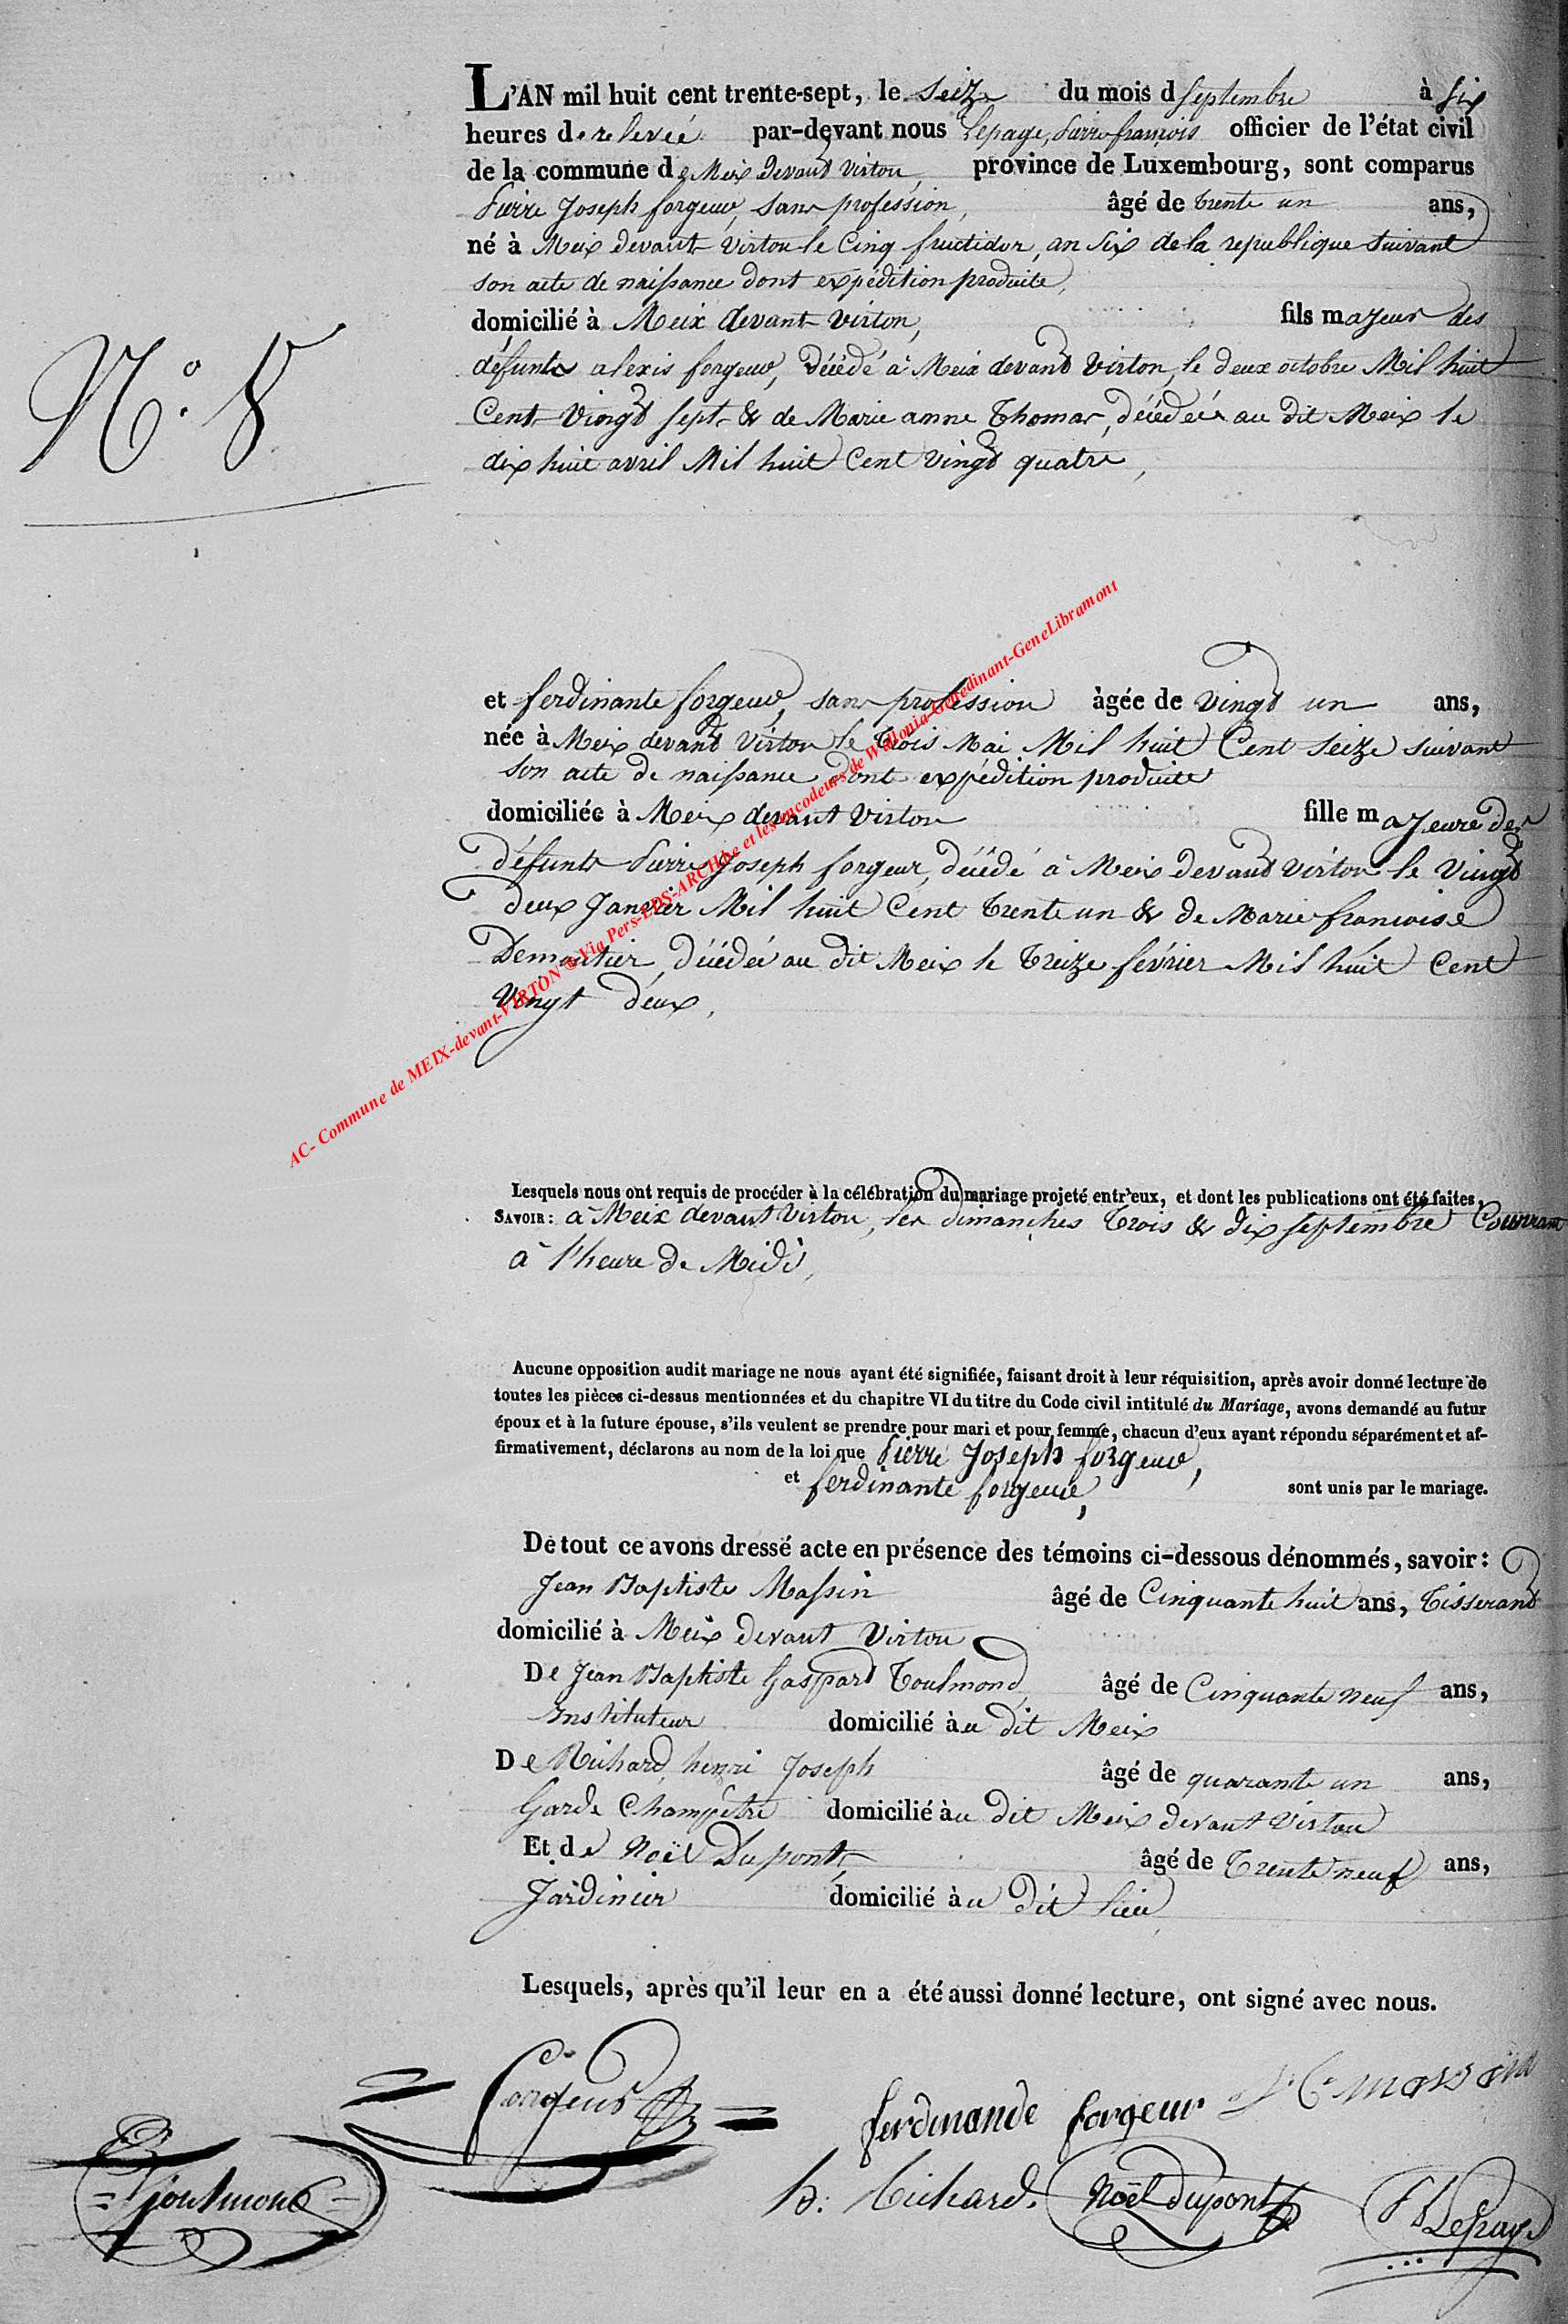 L'AN mil huit cent trente-sept, le Seize du mois d septembre à six
heures de relevée par-devant nous Lepage, Pierre françois officier de l'état civil
de la commune de Meix Devant Virton, province de Luxembourg, sont comparus
Pierre Joseph forgeur, sans profession, âgé de trente un ans,
né à Meix devant Virton le Cinq fructidor, an six de la republique suivant
son acte de naissance dont expédition produite,
domicilié à Meix devant Virton, fils majeur des
N.º 8
défunts alexis forgeur, décédé à Meix devant Virton, le deux octobre Mil huit
Cent Vingt sept & de Marie anne Thomas, décédée au dit Meix le
dix huit avril Mil huit Cent vingt quatre,
et ferdinante forgeur, sans profession àgée de vingt un ans,
née à Meix devant Virton le trois Mai Mil huit Cent seize suivant
son acte de naissance dont expédition produite
domiciliée à Meix devant Virton fille majeure des
défunts Pierre Joseph forgeur, décédé à Meix devant Virton le Vingt
deux Janvier Mil huit Cent trente un & de Marie francoise
Demoutier, décédée au dit Meix le treize février Mil huit Cent
Vingt deux,
AC- Commune de MEIX-devant-VIRTON & Via Pers-EDS-ARCHive et les encodeurs de Wallonia-Genedinant-GeneLibramont
Lesquels nous ont requis de procéder à la célébration du mariage projeté entr'eux, et dont les publications ont été faites,
SAVOIR: à Meix devant Virton, les dimanches trois & dix septembre Courrant
à l'heure de Midi,
Aucune opposition audit mariage ne nous ayant été signifiée, faisant droit à leur réquisition, après avoir donné lecture de
toutes les pièces ci-dessus mentionnées et du chapitre VI du titre du Code civil intitulé du Mariage, avons demandé au futur
époux et à la future épouse, s'ils veulent se prendre pour mari et pour femme, chacun d'eux ayant répondu séparément et af-
firmativement, déclarons au nom de la loi que Pierre Joseph forgeur,
et ferdinante forgeur, sont unis par le mariage.
De tout ce avons dressé acte en présence des témoins ci-dessous dénommés, savoir:
Jean Baptiste Massin âgé de Cinquante huit ans, Tisserand
domicilié à Meix devant Virton
De Jean Baptiste Gaspard Toulmond, âgé de Cinquante neuf ans,
Instituteur domicilié au dit Meix
De Richard henri Joseph âgé de quarante un ans,
Garde Champêtre domicilié au dit Meix devant Virton
Et de Noël Dupont, âgé de Trente neuf ans,
Jardinier domicilié au dit lieu,
Lesquels, après qu'il leur en a été aussi donné lecture, ont signé avec nous.
forgeur ferdinande forgeur massin
Toulmond h. Richard. Noël dupont Lepage